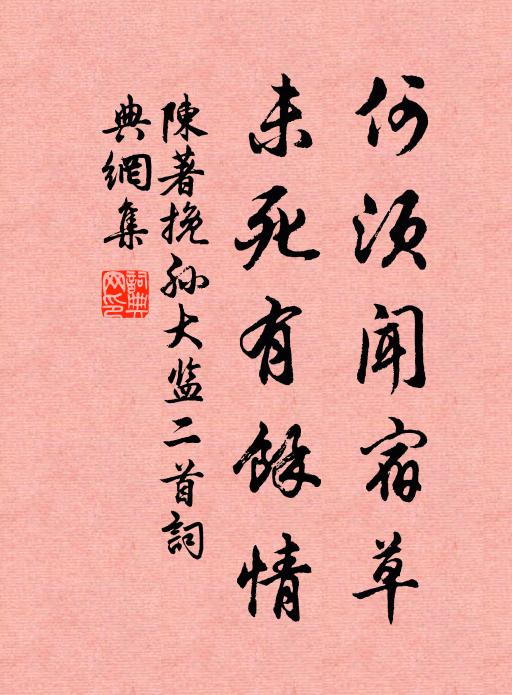 何須聞宿草
未死有餘情
陳著挽孫大监二首詞
典網集
詞典
网印